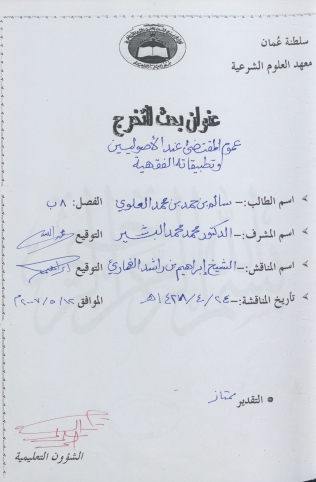 سلطنة عُمان
معهد العلوم الشرعية
عنوان بحث التخرج
عموم المقتضى عند الأصوليين
وتطبيقاته الفقهية
اسم الطالب:- سالم بن حمد بن محمد العلوي الفصل: ٨ ب
اسم المشرف:- الدكتور محمد محمد البشير التوقيع
اسم المناقش:- الشيخ إبراهيم بن راشد الغماري التوقيع
تاريخ المناقشة:- ١٤٢٨/٤/٢٤هـ الموافق ٢٠٠٧/٥/١٢م
التقدير ممتاز
الشؤون التعليمية